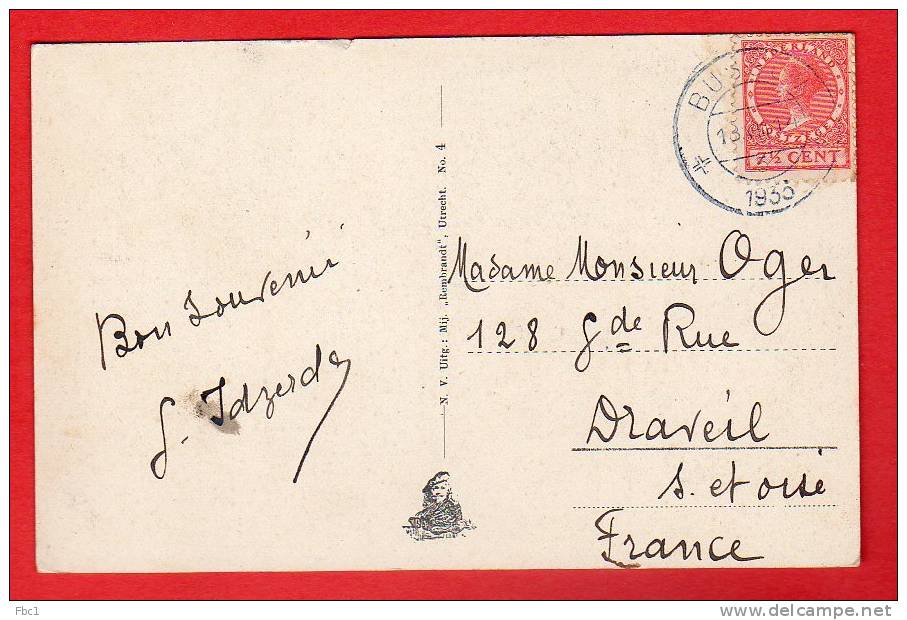 Bon Souvenir
G. Idzerda
N. V. Uitg.: Mij. „Rembrandt", Utrecht. No. 4
NEDERLAND
POSTZEGEL
7½ CENT
BUS
13
1935
Madame Monsieur Oger
128 Gde Rue
Draveil
S. et oise
France
Fbc1
www.delcampe.net